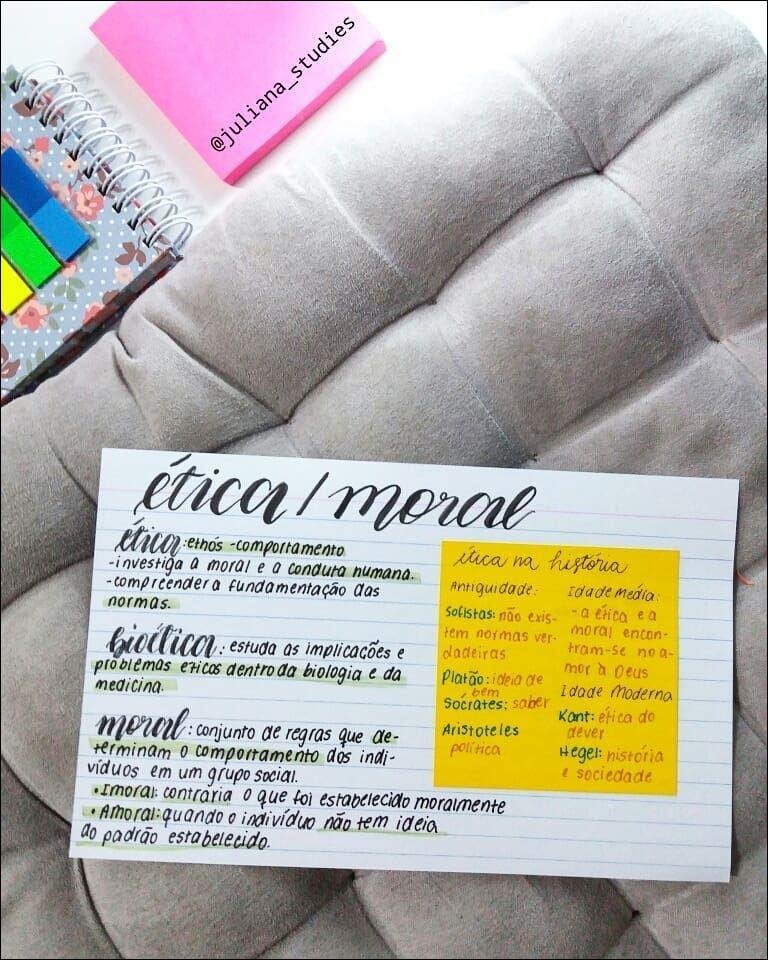 @juliana_studies
ética / moral
ética: ethós - comportamento
- investiga a moral e a conduta humana.
- compreender a fundamentação das
normas.
bioética: estuda as implicações e
problemas éticos dentro da biologia e da
medicina.
moral: conjunto de regras que de-
terminam o comportamento dos indi-
víduos em um grupo social.
• Imoral: contrária o que foi estabelecido moralmente
• Amoral: quando o indivíduo não tem ideia
do padrão estabelecido.
ética na história
Antiguidade:
Sofistas: não exis-
tem normas ver-
dadeiras
Platão: ideia de
bem
Sócrates: saber
Aristoteles
política
Idade média:
- a ética e a
moral encon-
tram-se no a-
mor à Deus
Idade Moderna
Kant: ética do
dever
Hegel: história
e sociedade